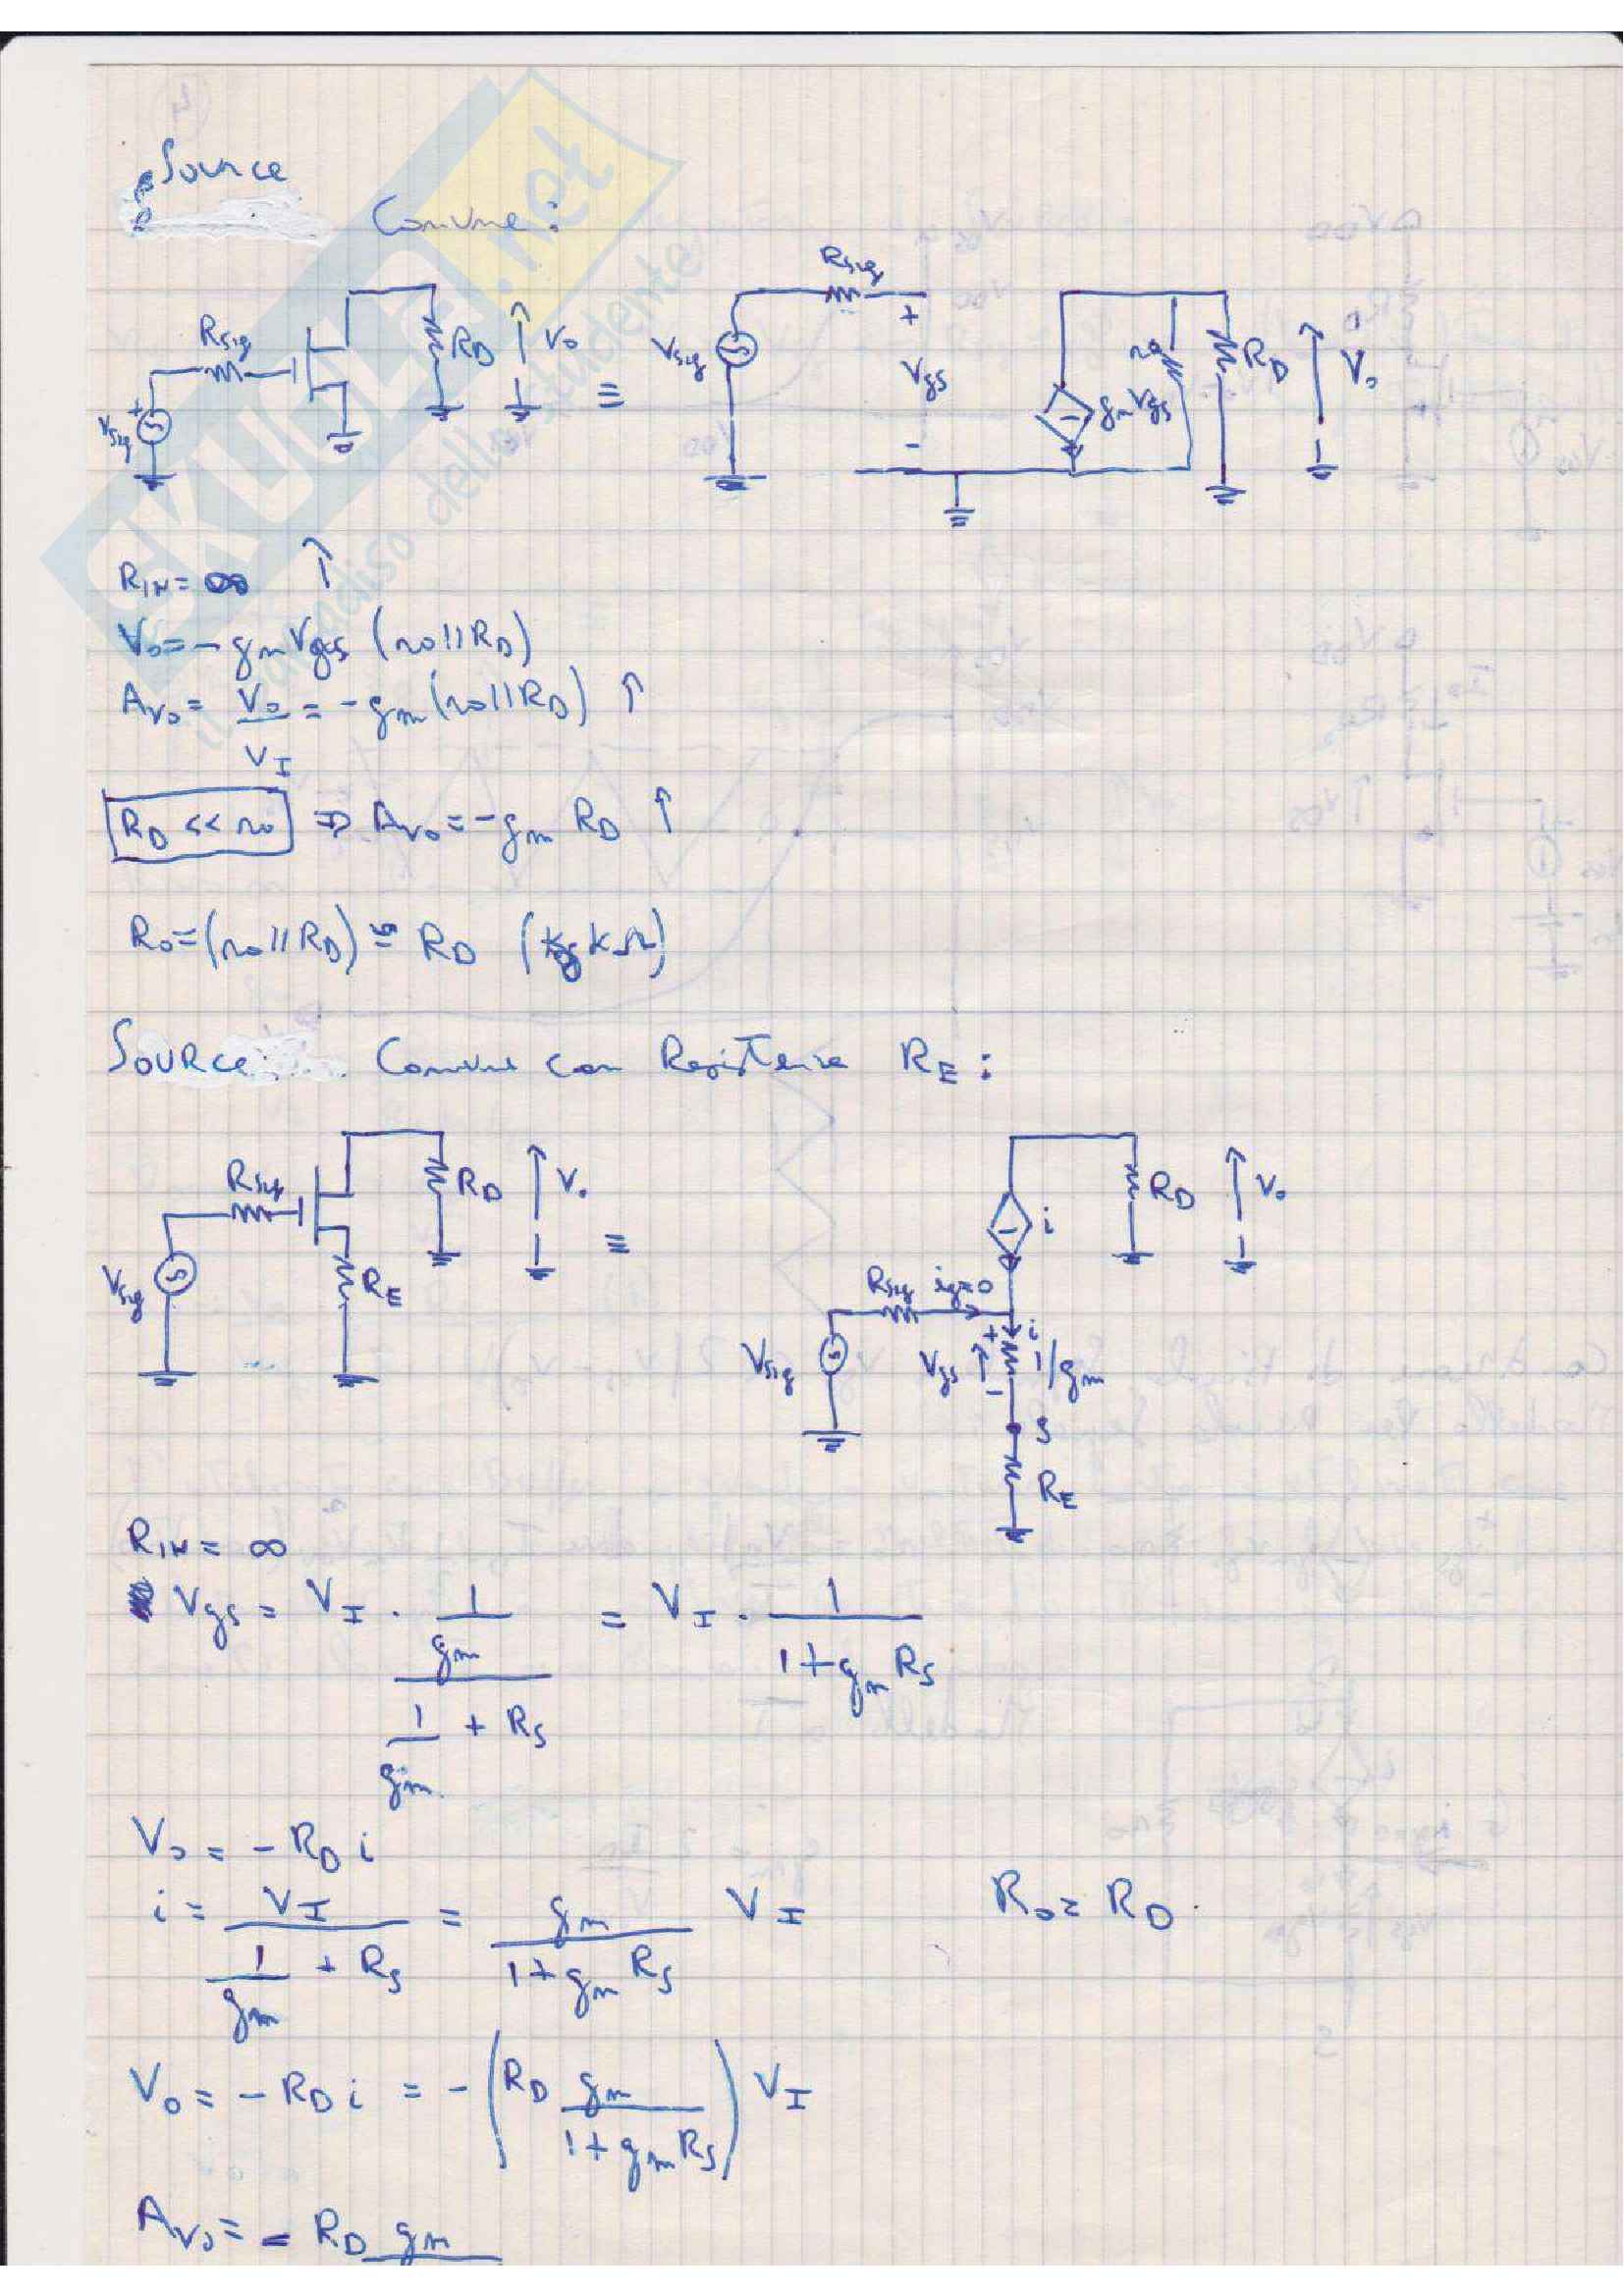 Source
Comune:
Rsig
RD
Vo
Vsig
≡
Rsig
Vsig
+
Vgs
-
gmVgs
ro
RD
Vo
SKUOLA.net
il paradiso dello studente
RIN = ∞ ↑
Vo = - gm Vgs (ro // RD)
Avo = Vo / VI = - gm (ro // RD) ↑
RD << ro ⇒ Avo = - gm RD ↑
Ro = (ro // RD) ≅ RD (kΩ)
SOURCE Comune con Resistenza RE:
Rsig
RD
Vo
Vsig
RE
≡
i
RD
Vo
Rsig ig=0
Vsig
+
Vgs
-
i
1/gm
S
RE
RIN = ∞
Vgs = VI · (1/gm) / (1/gm + RS) = VI · 1 / (1 + gm RS)
Vo = - RD i
i = VI / (1/gm + RS) = gm / (1 + gm RS) VI
Ro = RD
Vo = - RD i = - (RD gm / (1 + gm RS)) VI
Avo = - RD gm